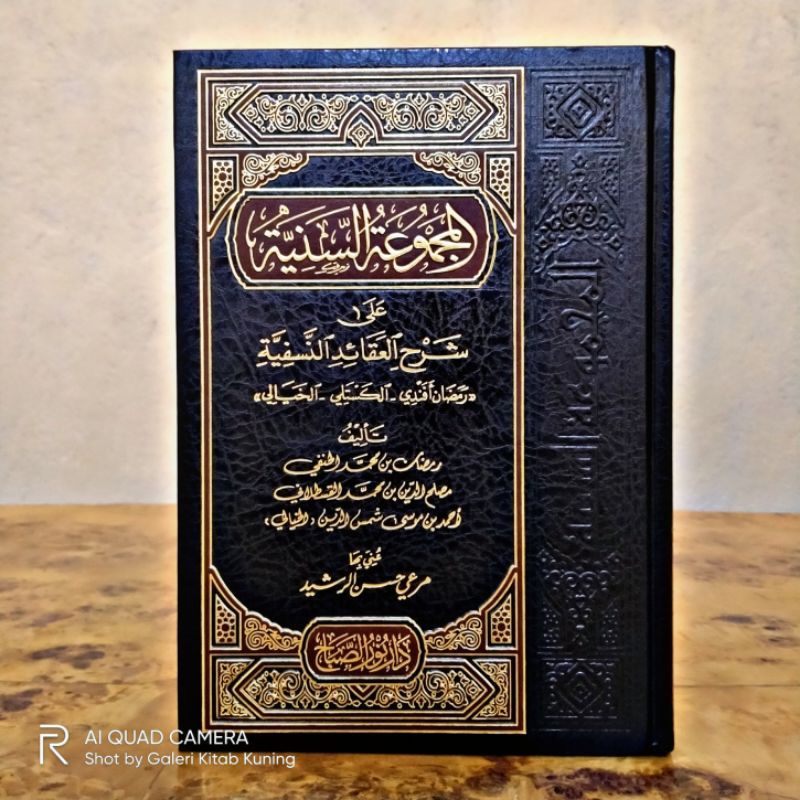 المجموعة السنية
على
شرح العقائد النسفية
«رمضان أفندي - الكستلي - الخيالي»
تأليف
رمضان بن محمد الحنفي
مصلح الدين بن محمد القسطلاني
أحمد بن موسى شمس الدين (الخيالي)
عني بها
مرعي حسن الرشيد
دار نور الصباح
المجموعة السنية
AI QUAD CAMERA
Shot by Galeri Kitab Kuning